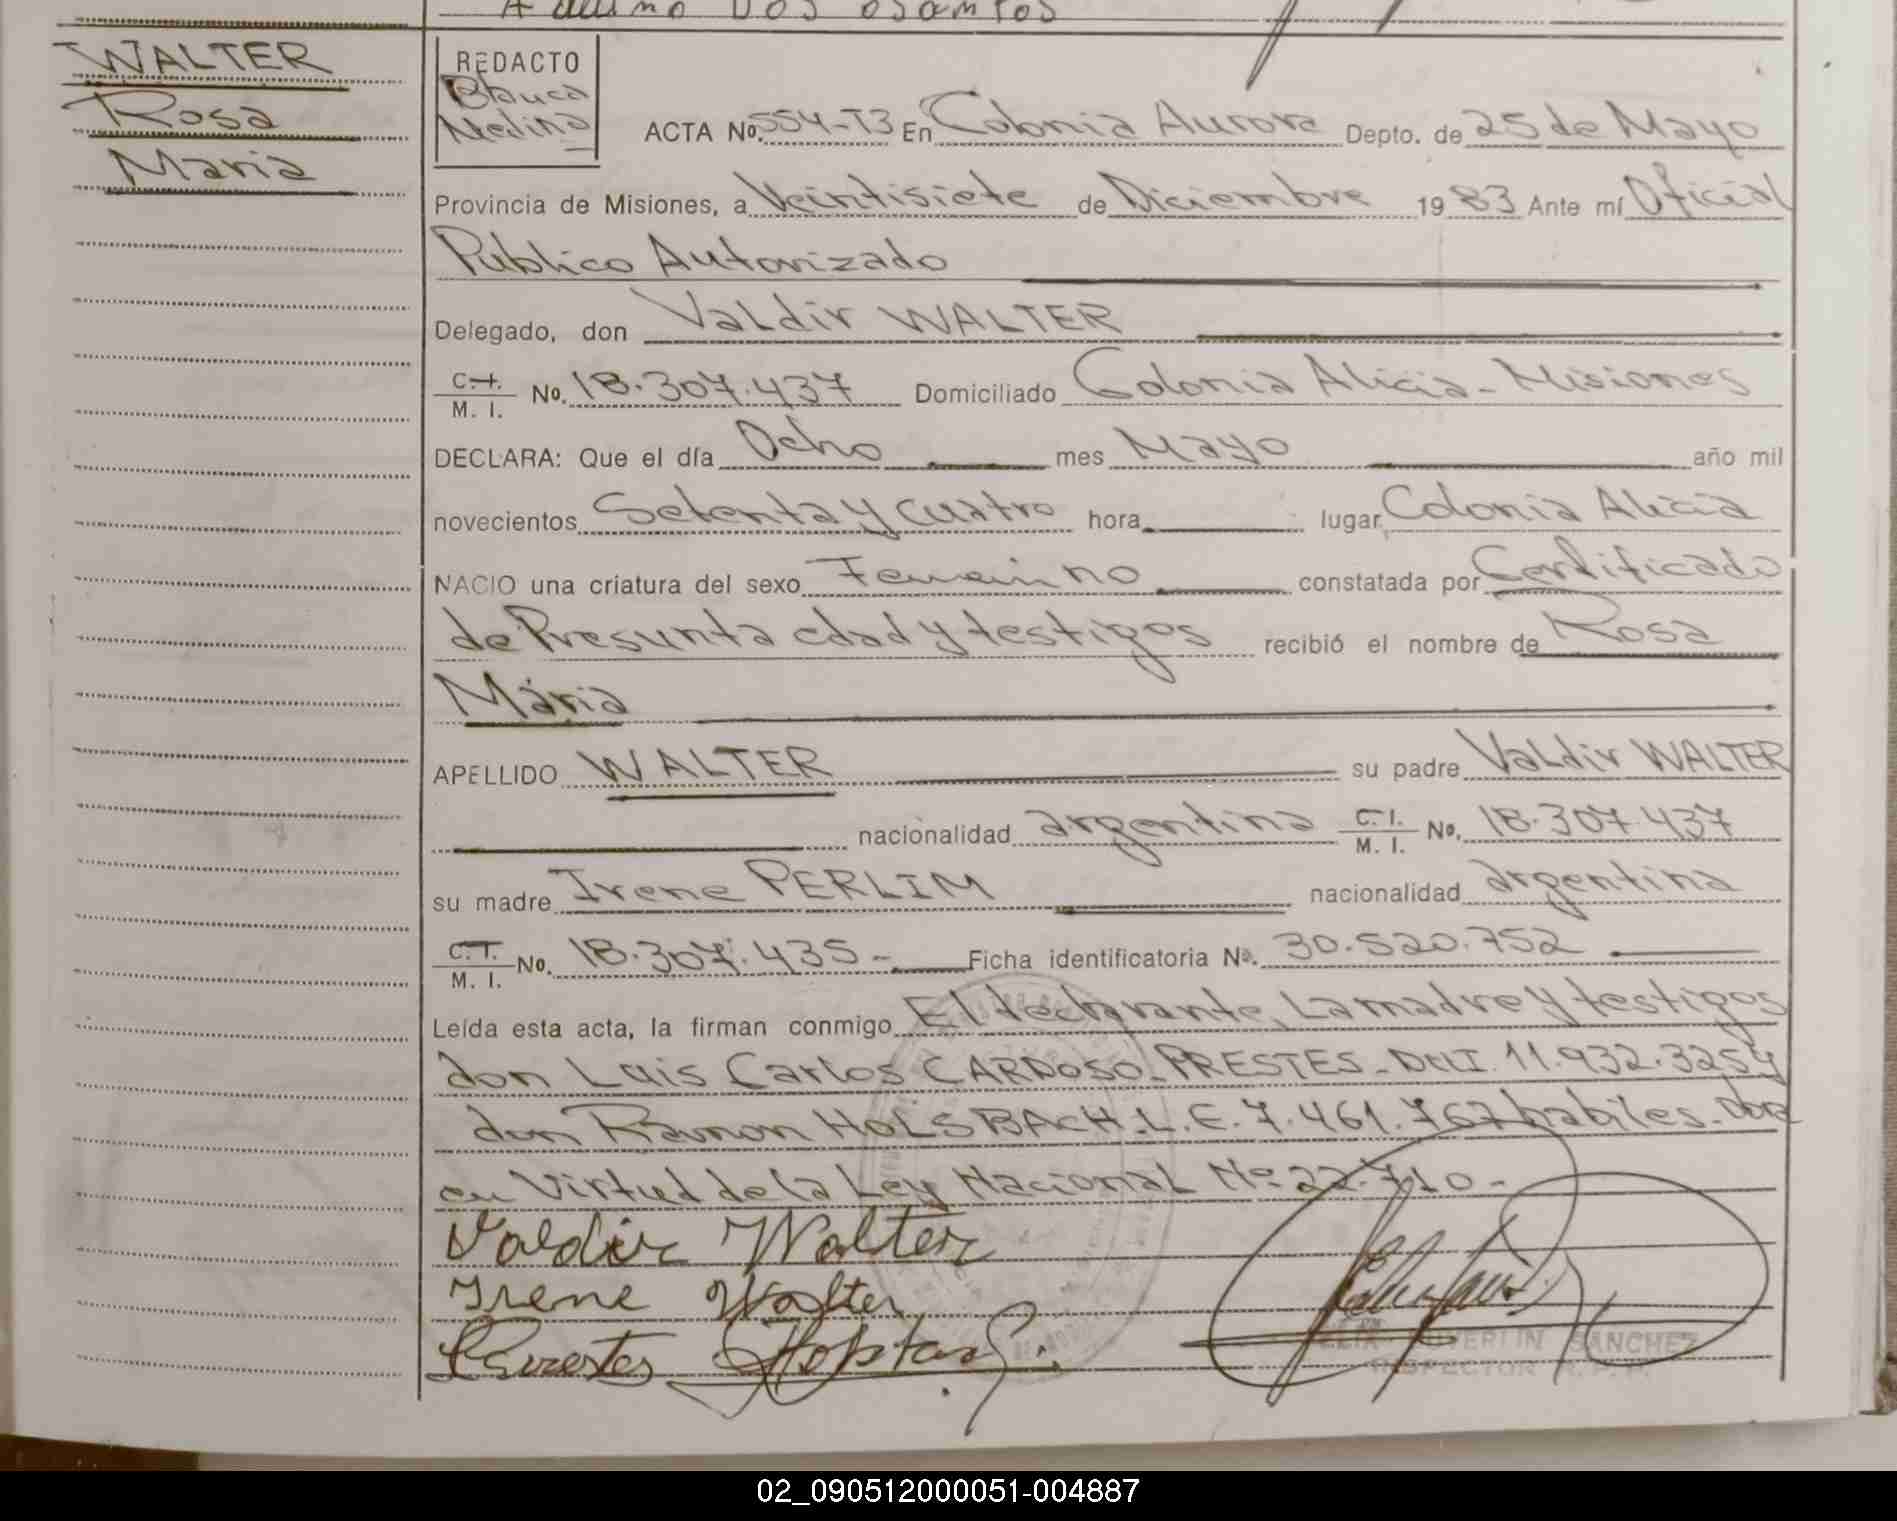 WALTER
Rosa
Maria
REDACTO
Blanca
Medina
ACTA No. 554-T3 En Colonia Aurora Depto. de 25 de Mayo
Provincia de Misiones, a Veintisiete de Diciembre 19 83 Ante mí Oficial
Publico Autorizado
Delegado, don Valdir WALTER
C.I. M. I. No. 18.307.437 Domiciliado Colonia Alicia - Misiones
DECLARA: Que el día Ocho mes Mayo año mil
novecientos Setenta y cuatro hora lugar Colonia Alicia
NACIO una criatura del sexo Femenino constatada por Certificado
de Presunta edad y testigos recibió el nombre de Rosa
Maria
APELLIDO WALTER su padre Valdir WALTER
nacionalidad argentina C.I. M. I. No. 18.307.437
su madre Irene PERLIM nacionalidad argentina
C.I. M. I. No. 18.307.435 - Ficha identificatoria No. 30.520.752
Leída esta acta, la firman conmigo El declarante, La madre y testigos
don Luis Carlos CARDOSO PRESTES - DNI. 11.932.325 y
don Ramon HOLSBACH. L.E. 7.461.767 habiles.
en Virtud de la Ley Nacional No 22.710 -
Valdir Walter
Irene Walter
SANCHEZ
INSPECTOR
02_090512000051-004887